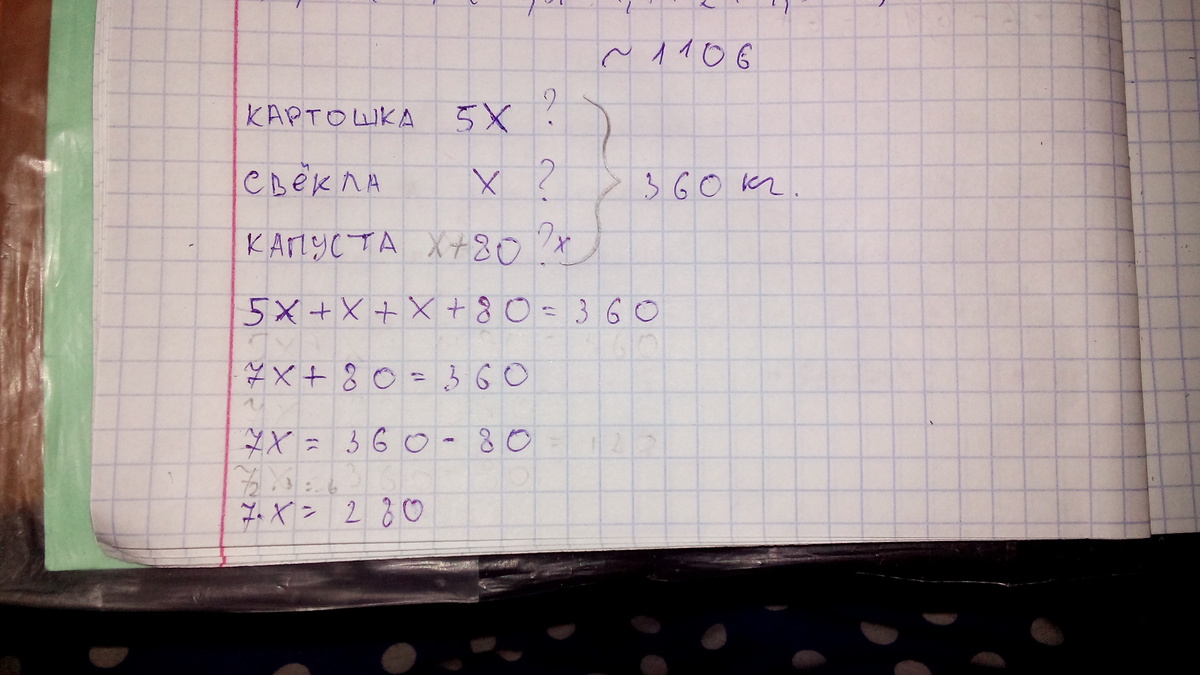 ~ 1106
КАРТОШКА 5X ?
СВЁКЛА X ? 360 кг.
КАПУСТА X+80 ?x
5X + X + X + 80 = 360
7X + 80 = 360
7X = 360 - 80
7·X = 280